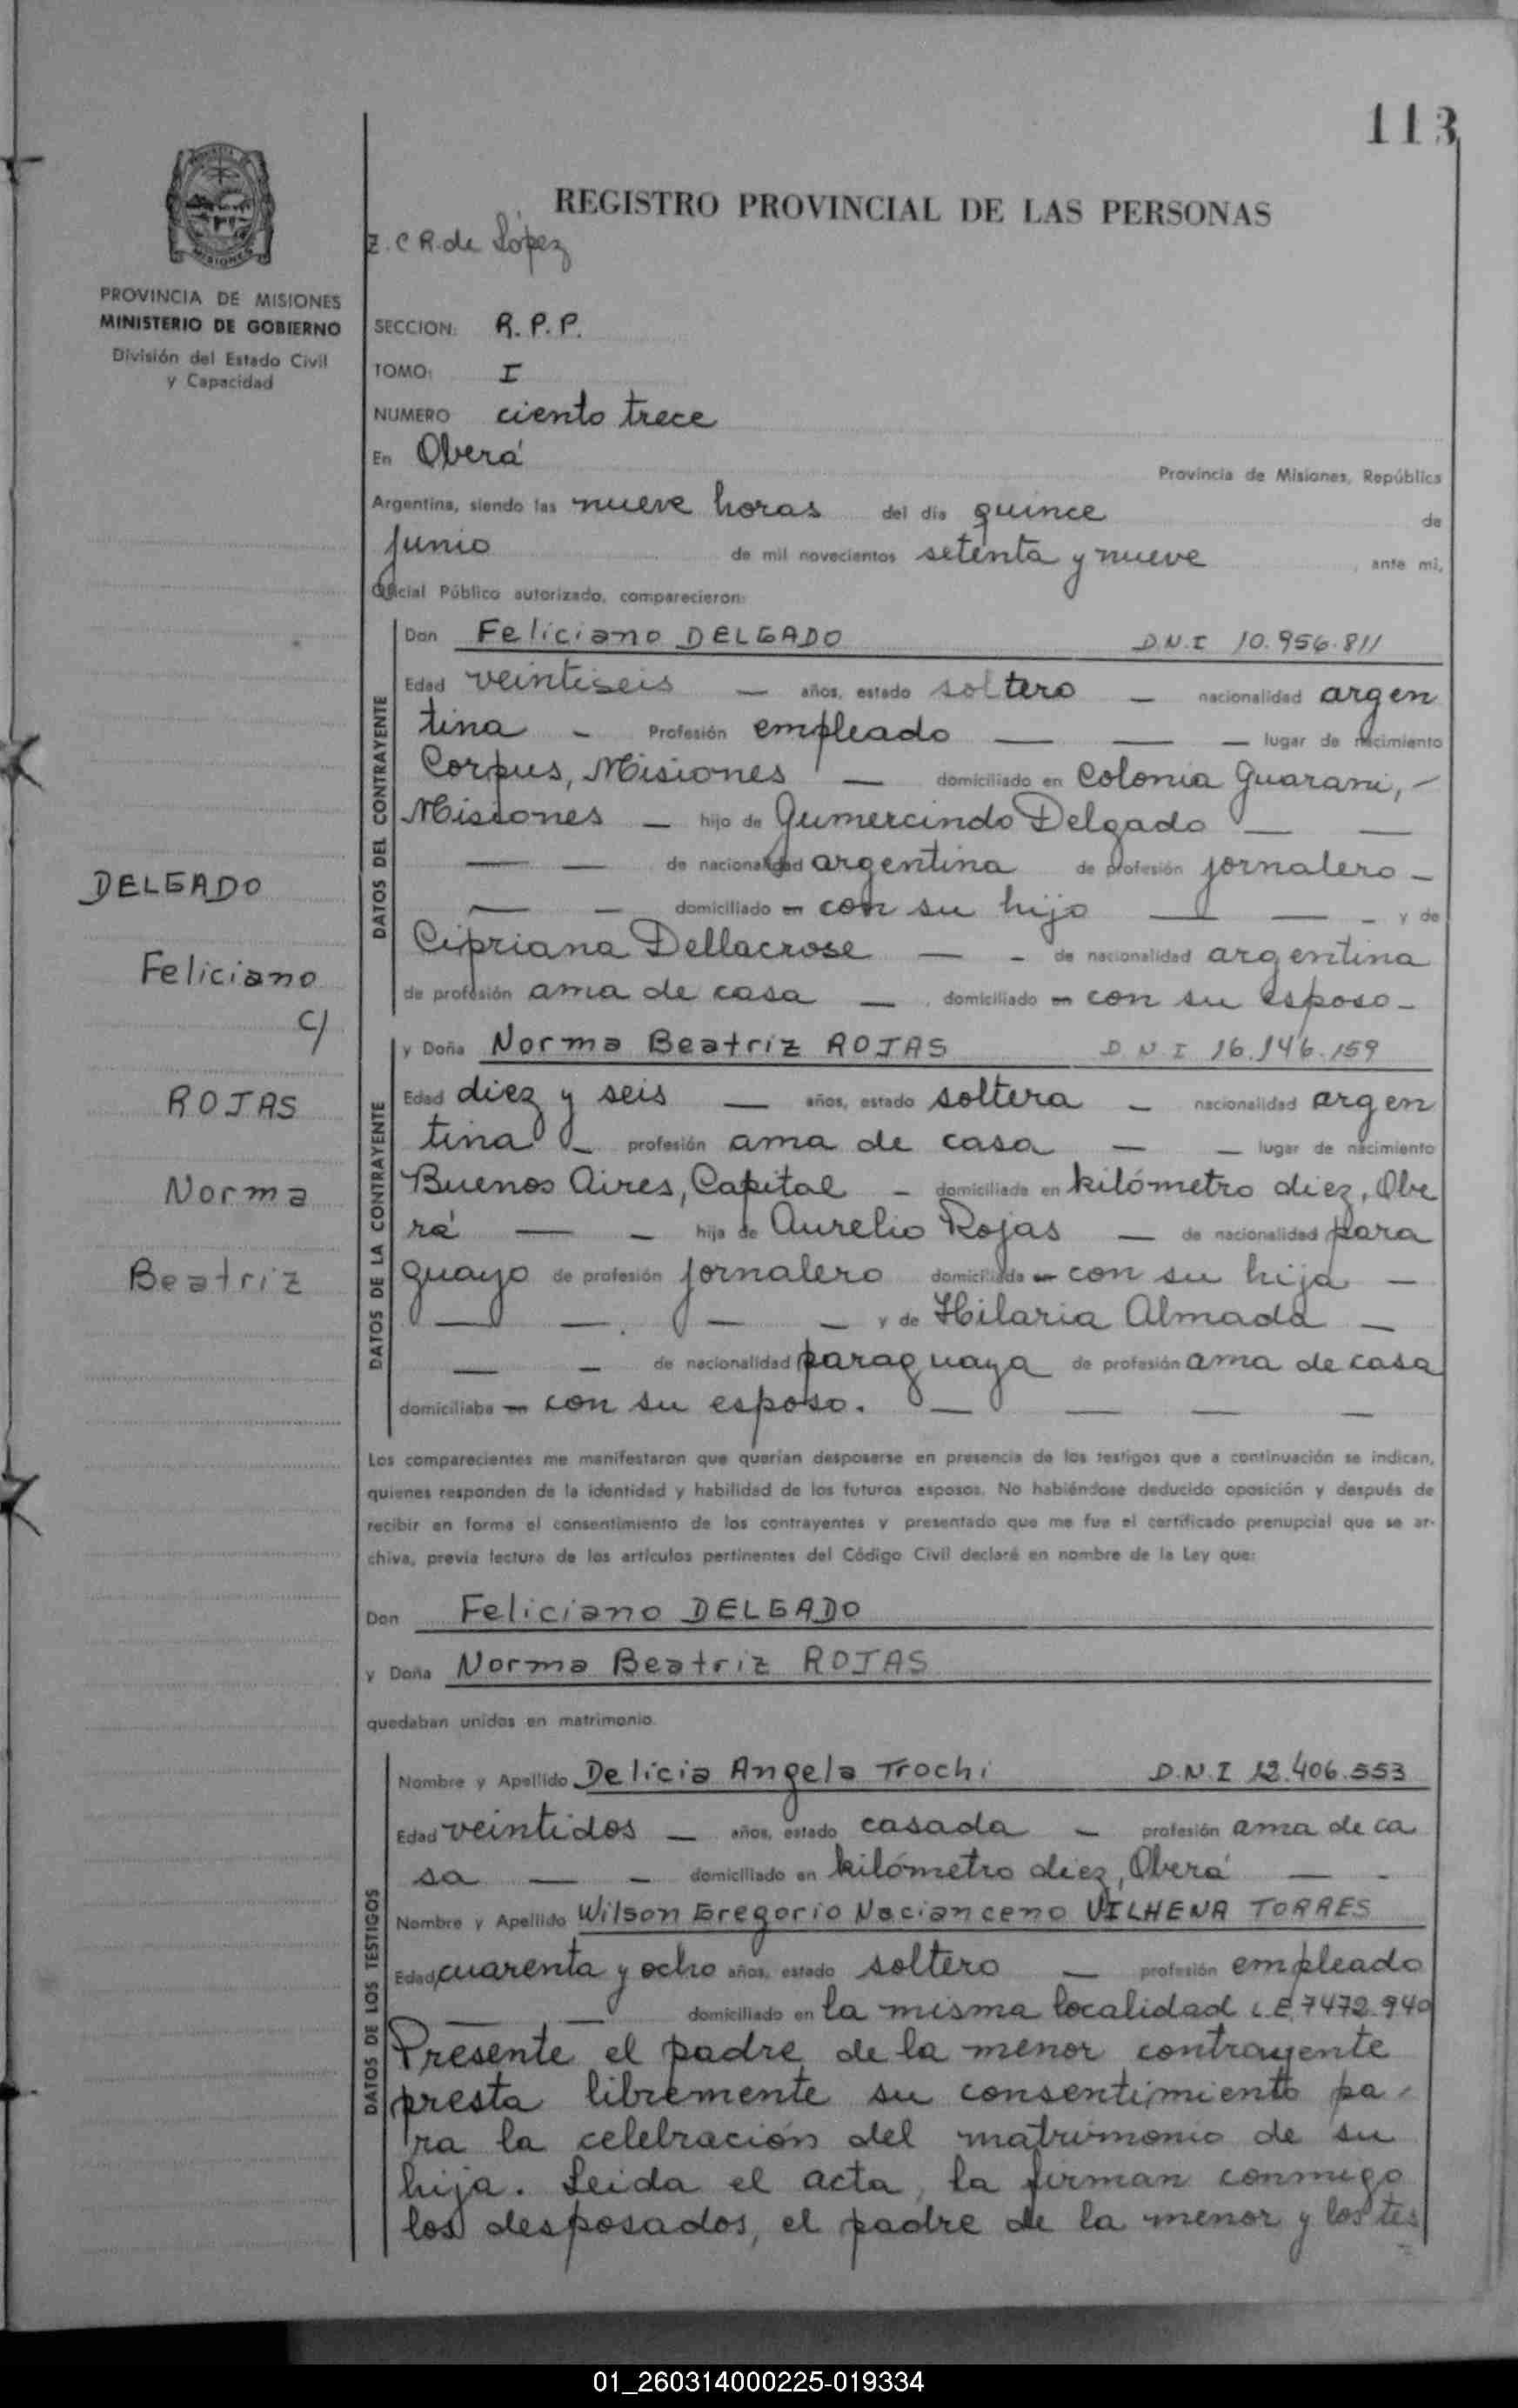 113
REGISTRO PROVINCIAL DE LAS PERSONAS
Z. C R. de López
PROVINCIA DE MISIONES
MINISTERIO DE GOBIERNO
División del Estado Civil
y Capacidad
SECCION: R. P. P.
TOMO: I
NUMERO ciento trece
En Oberá
Provincia de Misiones, República
Argentina, siendo las nueve horas del día quince de
junio de mil novecientos setenta y nueve, ante mi,
Oficial Público autorizado, comparecieron:
Don Feliciano DELGADO D.N.I 10.956.811
Edad veintiseis — años, estado soltero — nacionalidad argen
tina - Profesión empleado — — — lugar de nacimiento
Corpus, Misiones — domiciliado en Colonia Guarani, -
Misiones — hijo de Gumercindo Delgado — —
— — de nacionalidad argentina de profesión jornalero -
— — domiciliado en con su hijo — — - y de
Cipriana Dellacrose — - de nacionalidad argentina
de profesión ama de casa — domiciliado en con su esposo -
DATOS DEL CONTRAYENTE
DELGADO
Feliciano
c/
ROJAS
Norma
Beatriz
y Doña Norma Beatriz ROJAS D N I 16.146.159
Edad diez y seis — años, estado soltera — nacionalidad argen
tina - profesión ama de casa — — lugar de nacimiento
Buenos Aires, Capital - domiciliada en kilómetro diez, Obe
rá — - hija de Aurelio Rojas — de nacionalidad para
guayo de profesión jornalero domiciliado en con su hija —
— — . — — y de Hilaria Almada —
— — de nacionalidad paraguaya de profesión ama de casa
domiciliaba en con su esposo. — — — —
DATOS DE LA CONTRAYENTE
Los comparecientes me manifestaron que querían desposarse en presencia de los testigos que a continuación se indican,
quienes responden de la identidad y habilidad de los futuros esposos. No habiéndose deducido oposición y después de
recibir en forma el consentimiento de los contrayentes y presentado que me fue el certificado prenupcial que se ar-
chiva, previa lectura de los artículos pertinentes del Código Civil declaré en nombre de la Ley que:
Don Feliciano DELGADO
y Doña Norma Beatriz ROJAS
quedaban unidos en matrimonio.
Nombre y Apellido Delicia Angela Trochi D.N.I 12.406.553
Edad veintidos — años, estado casada - profesión ama de ca
sa — - domiciliado en kilómetro diez, Oberá — -
Nombre y Apellido Wilson Gregorio Nacianceno VILHENA TORRES
Edad cuarenta y ocho años, estado soltero — profesión empleado
— — domiciliado en la misma localidad L.E. 7472.940
DATOS DE LOS TESTIGOS
Presente el padre de la menor contrayente
presta libremente su consentimiento pa-
ra la celebración del matrimonio de su
hija. Leida el acta, la firman conmigo
los desposados, el padre de la menor y los tes
01_260314000225-019334